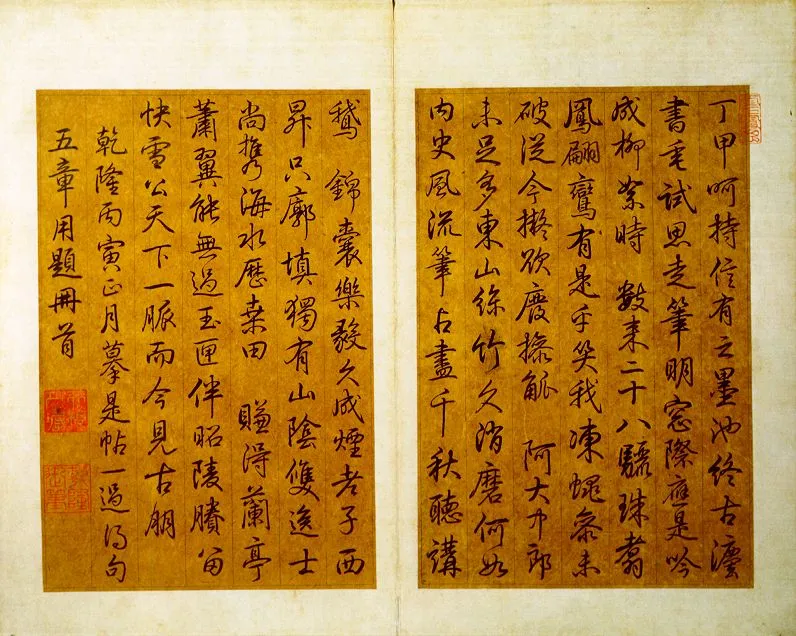 丁甲呵持信有之墨池終古
書試思走筆明窗際應是吟
成柳絮時 數來二十八驪珠翥
鳳翩鸞有是乎笑我凍蠅參未
破從今擬欲廢操觚 阿大中郎
未足多東山絲竹久消磨何如
內史風流筆占盡千秋聽講
鵝 錦囊樂毅久成煙老子西
昇只廓填獨有山陰雙逸士
尚携海水歷桑田 賺得蘭亭
蕭翼能無過玉匣伴昭陵賸留
快雪公天下一脈而今見古朋
乾隆丙寅正月摹是帖一過得句
五章用題冊首